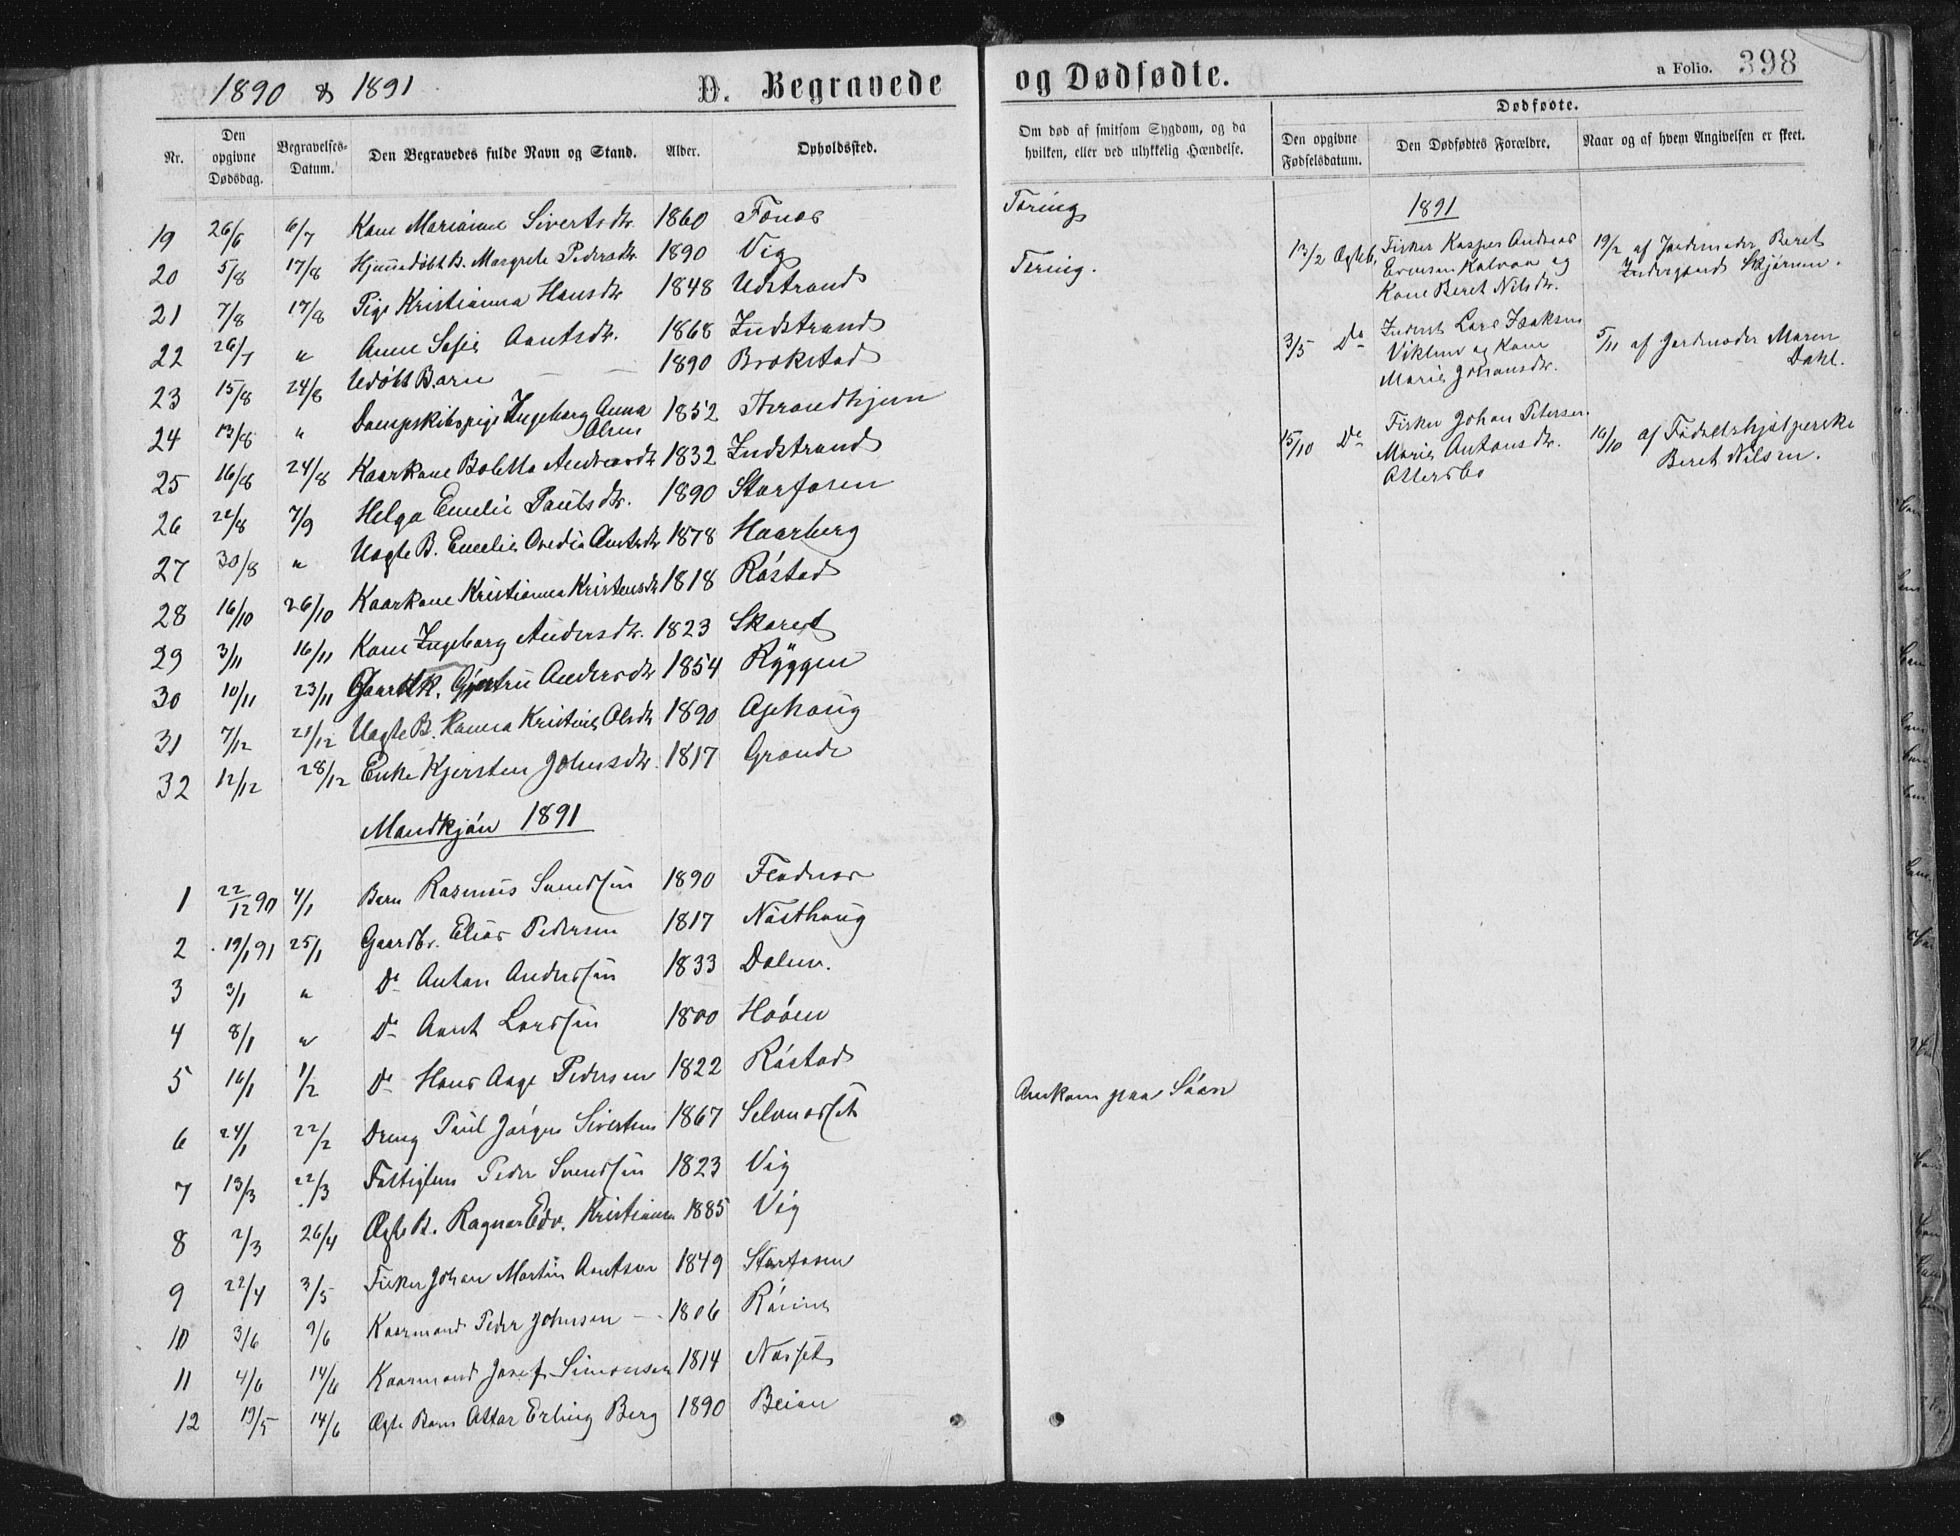 1890 & 1891
D. Begravede og Dødfødte.
a Folio. 398
Nr.
Den opgivne Dødsdag.
Begravelses-Datum.
Den Begravedes fulde Navn og Stand.
Alder.
Opholdssted.
Om død af smitsom Sygdom, og da hvilken, eller ved ulykkelig Hændelse.
Dødføote.
Den opgivne Fødselsdatum.
Den Dødfødtes Forældre.
Naar og af hvem Angivelsen er skeet.
19 26/6 6/7 Kone Marianne Sivertsdr. 1860 Tæring
20 5/8 17/8 Hjemmedøbt B. Margrete Pedersdr. 1890 Vig Tæring.
21 7/8 17/8 Pige Kristianna Hansdr. 1848 Udstrand
22 26/7 " Anne Sofie Arntsdr. 1868 Indstrand
23 15/8 24/8 Udøbt Barn — — 1890 Brækstad
24 13/8 " Dampskibspige Ingeborg Anna Olsen 1852 Throndhjem
25 16/8 24/8 Kaarkone Boletta Andreasdr. 1832 Indstrand
26 22/8 7/9 Helga Emelie Paulsdr. 1890 Storfosen
27 30/8 " Uægte B. Emelie Arntsdr. 1878 Haarberg
28 16/10 26/10 Kaarkone Kristianna Kristensdr. 1818 Røstad
29 3/11 16/11 Kone Ingeborg Andersdr. 1823 Skaret
30 10/11 23/11 Gaardk. Andersdr. 1854 Ryggen
31 7/12 21/12 Uægte B. Hanna Kristine Olsdr. 1890 Ophaug
32 12/12 28/12 Enke Kjersten Johnsdr. 1817 Grande
Mandkjøn 1891
1 22/12 90 4/1 Barn Rasmus Svendsen 1890 Fladnes
2 19/1 91 25/1 Gaardbr. Elias Pedersen 1817 Næsthaug
3 3/1 " Do Anton Anderssen 1833 Dalen.
4 8/1 " Do Arnt Larssen 1800 Hoøen
5 16/1 1/2 Do Hans Aage Pedersen 1822 Røstad
6 24/1 22/2 Dreng Paul Jørgen Sivertsen 1867 Selvnesset Omkom paa Søen
7 13/3 22/3 Fattiglem Peder Svendsen 1823 Vig
8 2/3 26/4 Ægte B. Ragnar Edv. Kristiansen 1885 Vig
9 22/4 3/5 Fisker Johan Martin Arntsen 1849 Storfosen
10 3/6 9/6 Kaarmand Peder Johnsen — 1806 Rønne
11 4/6 14/6 Kaarmand Josef Simonsen 1814 Næsset
12 19/5 14/6 Ægte Barn Ottar Erling Berg 1890 Beian
1891
13/2 Ægteb. Fisker Kasper Andreas
Evensen Kalvaa og
Kone Beret Nilsdr.
19/2 af Jordemoder Beret
Indergaard Skjørum.
3/5 Do Inderst Lars Isaksen
Viklem og Kone
Marie Johansdr.
5/11 af Jordemoder Maren
Dahl.
15/10 Do Fisker Johan Petersen
Marie Antonsdr.
Ottersbo
16/10 af Fødselshjælperske
Beret Nilsen.